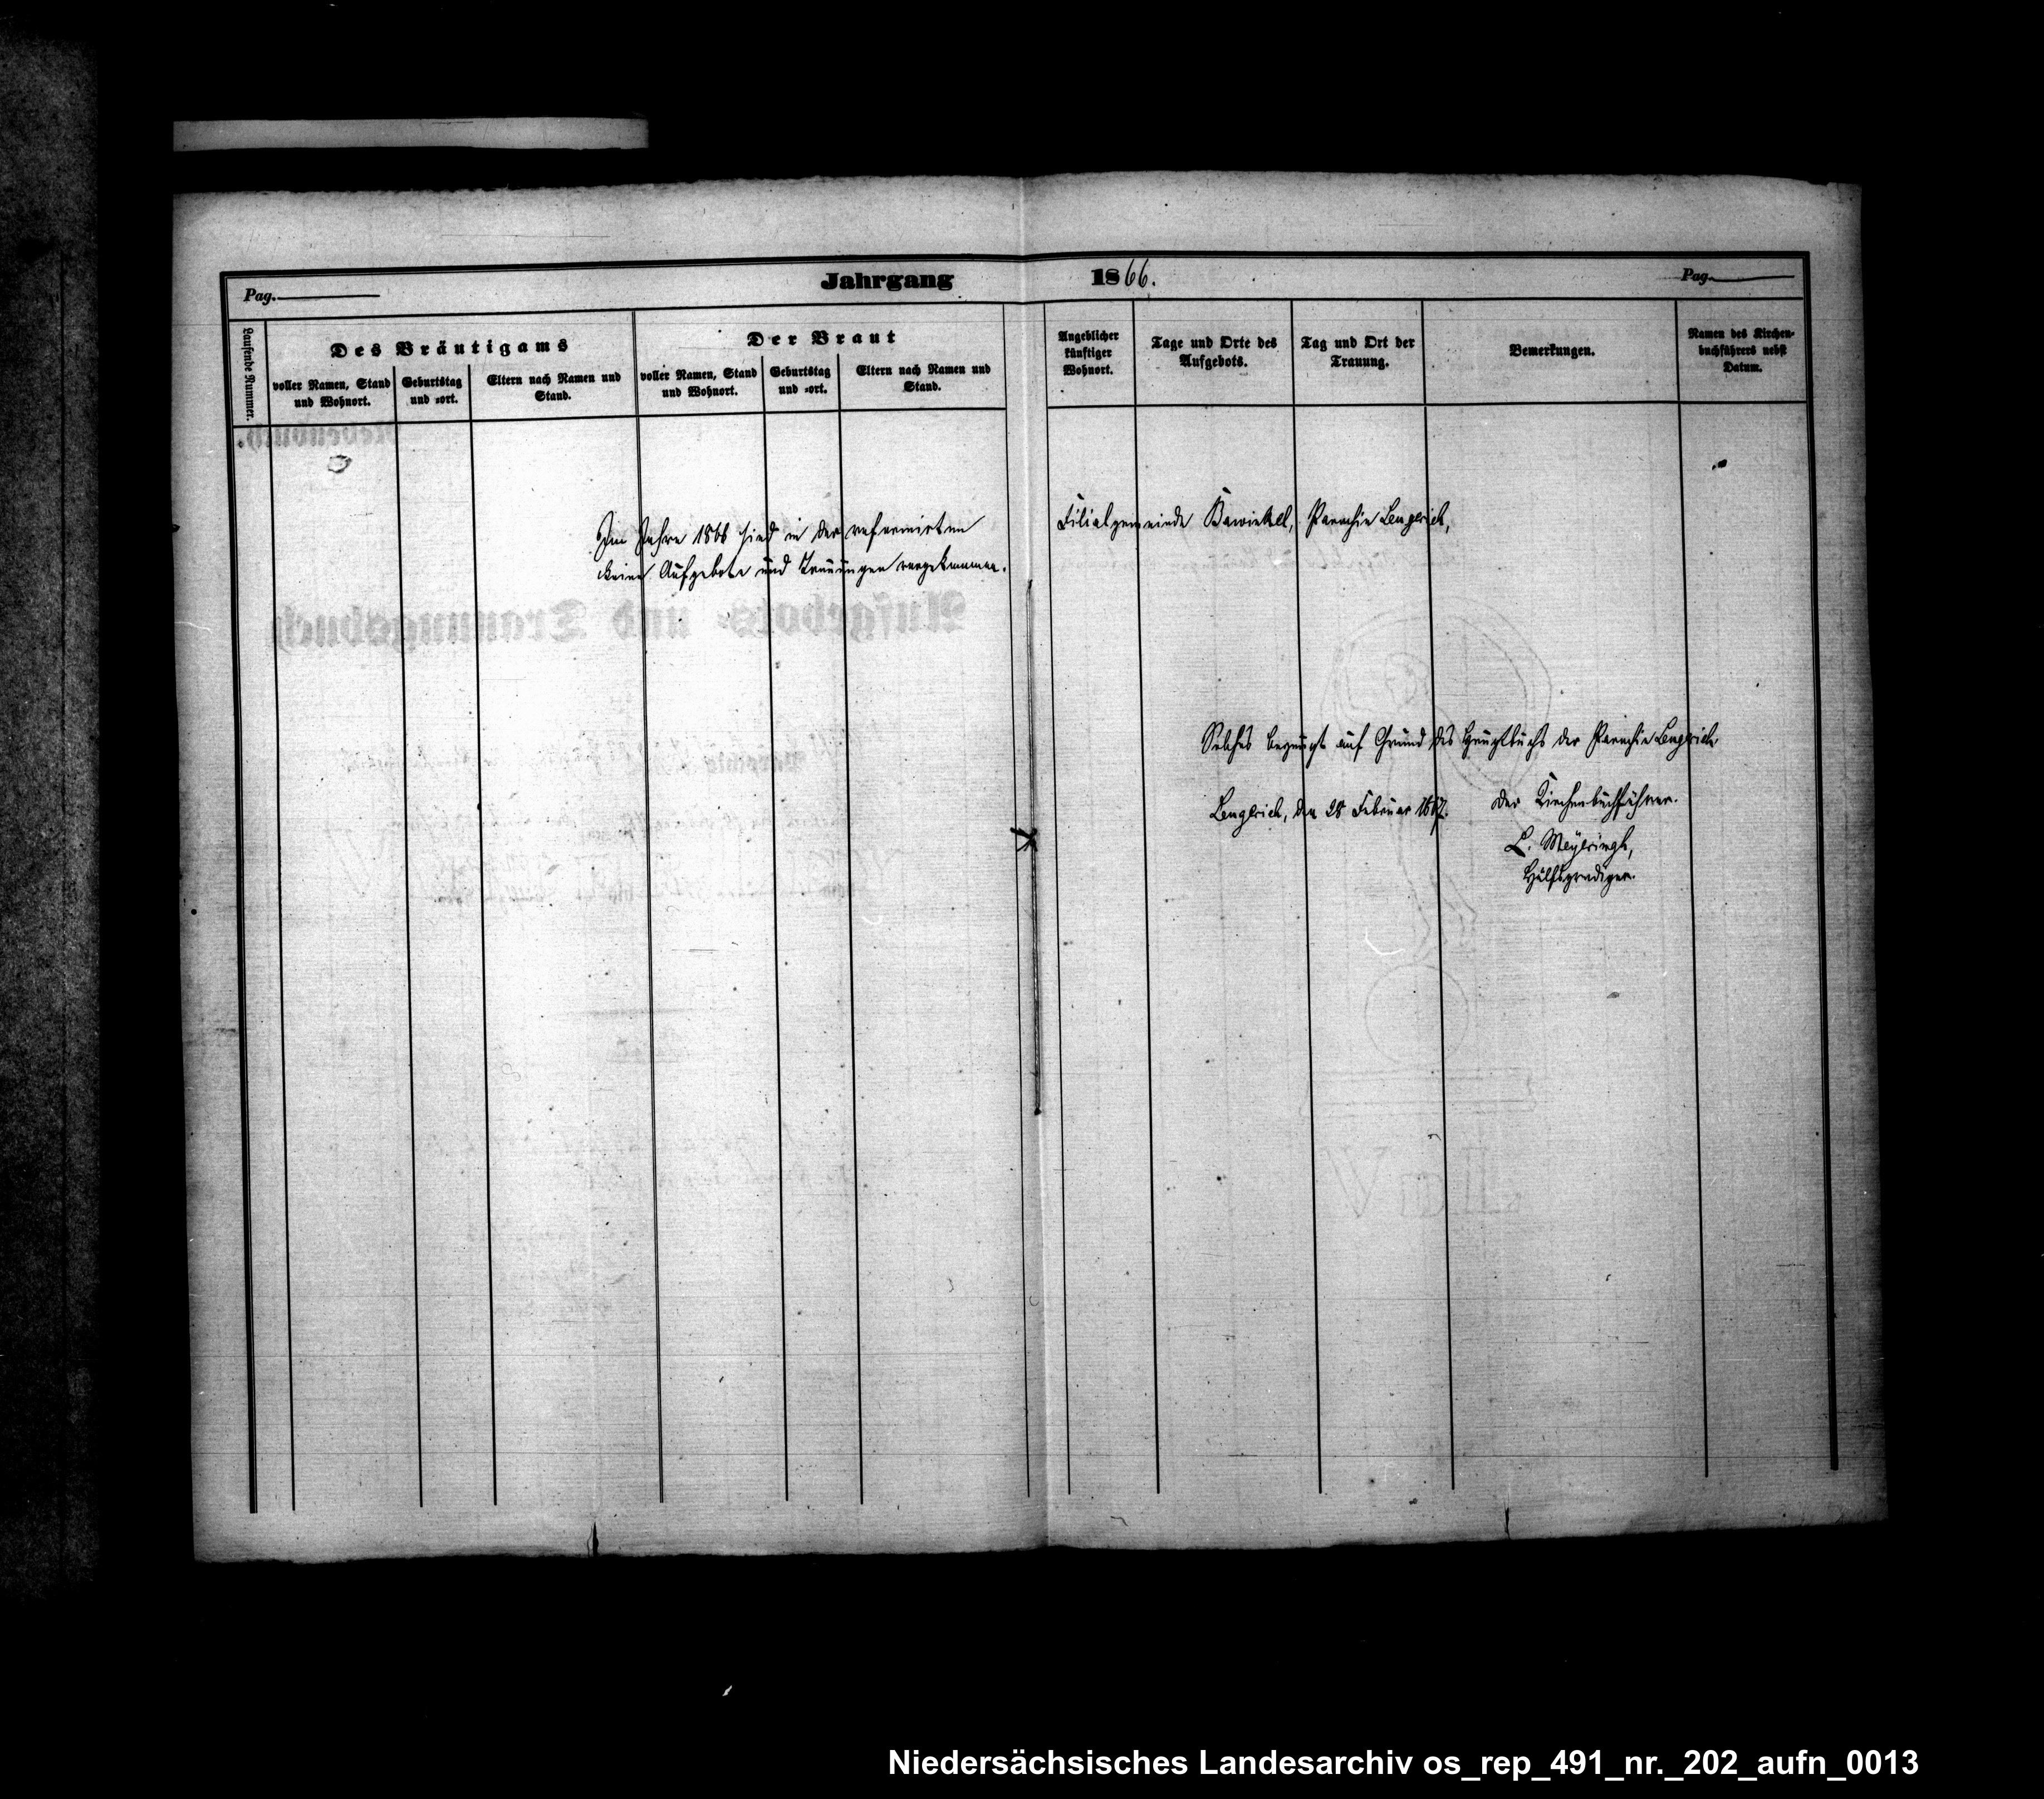 Jahrgang 1866.
Pag.
Pag.
Laufende Nummer.
Des Bräutigams
voller Namen, Stand
und Wohnort.
Geburtstag
und =ort.
Eltern nach Namen und
Stand.
Der Braut
voller Namen, Stand
und Wohnort.
Geburtstag
und =ort.
Eltern nach Namen und
Stand.
Angeblicher
künftiger
Wohnort.
Tage und Orte des
Aufgebots.
Tag und Ort der
Trauung.
Bemerkungen.
Namen des Kirchen-
buchführers nebst
Datum.
Im Jahre 1866 sind in der reformirten Filialgemeinde Bawinkel, Parochie Lengerich,
keine Aufgebote und Trauungen vorgekommen.
Solches bezeugt auf Grund des Hauptbuchs der Parochie Lengerich
Lengerich, den 28 Februar 1867. Der Kirchenbuchführer.
L. Meyeringh,
Hülfsprediger.
Nebenbuch.
Aufgebots- und Trauungsbuch
Niedersächsisches Landesarchiv os_rep_491_nr._202_aufn_0013